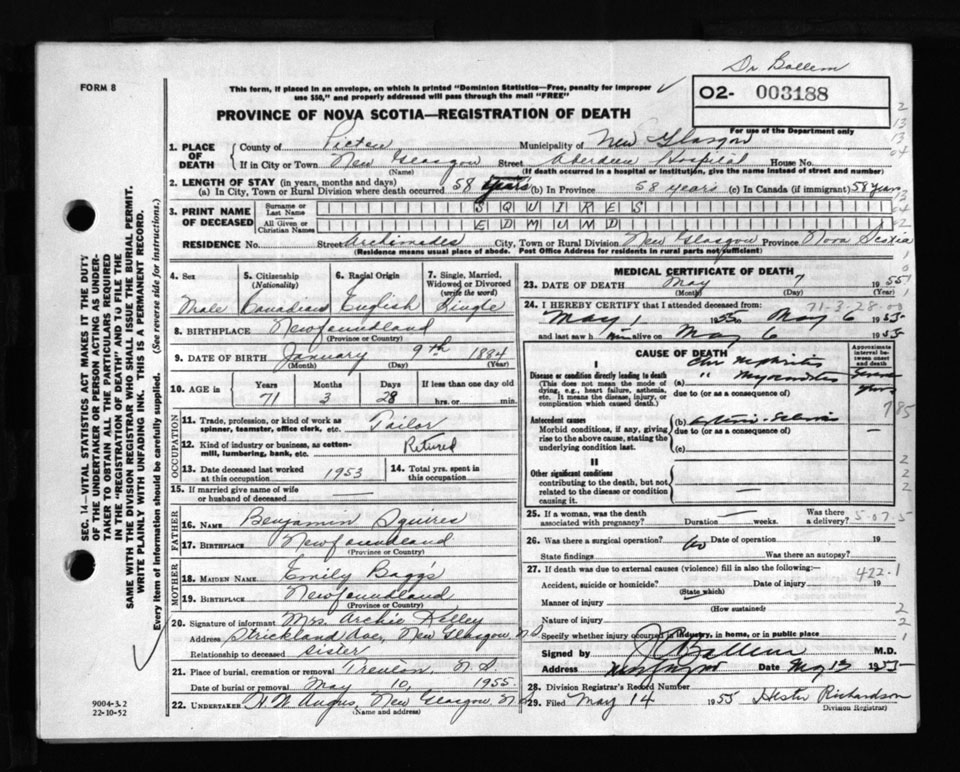 Dr Ballem
FORM 8
This form, if placed in an envelope, on which is printed "Dominion Statistics—Free, penalty for improper
use $50," and properly addressed will pass through the mail "FREE"
O2- 003188
For use of the Department only
PROVINCE OF NOVA SCOTIA—REGISTRATION OF DEATH
1. PLACE OF DEATH
County of Pictou Municipality of New Glasgow
If in City or Town New Glasgow Street Aberdeen Hospital House No.
(Name) (If death occurred in a hospital or institution, give the name instead of street and number)
2. LENGTH OF STAY (in years, months and days)
(a) In City, Town or Rural Division where death occurred 58 years (b) In Province 58 years (c) In Canada (if immigrant) 58 years
3. PRINT NAME OF DECEASED
Surname or Last Name SQUIRES
All Given or Christian Names EDMUND
RESIDENCE No. Street Archimedes City, Town or Rural Division New Glasgow Province Nova Scotia
(Residence means usual place of abode. Post office address for residents in rural parts not sufficient)
4. Sex Male
5. Citizenship (Nationality) Canadian
6. Racial Origin English
7. Single, Married, Widowed or Divorced (write the word) Single
8. BIRTHPLACE Newfoundland
(Province or Country)
9. DATE OF BIRTH January 9th 1884
(Month) (Day) (Year)
10. AGE in Years Months Days If less than one day old
71 3 28 hrs. or min.
OCCUPATION
11. Trade, profession, or kind of work as spinner, teamster, office clerk, etc. Tailor
12. Kind of industry or business, as cotton-mill, lumbering, bank, etc. Retired
13. Date deceased last worked at this occupation 1953
14. Total yrs. spent in this occupation
15. If married give name of wife or husband of deceased —
FATHER
16. NAME Benjamin Squires
17. BIRTHPLACE Newfoundland
(Province or Country)
MOTHER
18. MAIDEN NAME Emily Baggs
19. BIRTHPLACE Newfoundland
(Province or Country)
20. Signature of informant Mrs. Archie Kelley
Address Strickland Ave, New Glasgow, N.S.
Relationship to deceased sister
21. Place of burial, cremation or removal Trenton, N.S.
Date of burial or removal May 10, 1955
22. UNDERTAKER H. W. Angus, New Glasgow N.S.
(Name and address)
MEDICAL CERTIFICATE OF DEATH
23. DATE OF DEATH May 7 1955
(Month) (Day) (Year)
24. I HEREBY CERTIFY that I attended deceased from:
71-3-28
May 1 1955 to May 6 1955
and last saw him alive on May 6 1955
CAUSE OF DEATH
Approximate interval between onset and death
I
Disease or condition directly leading to death
(This does not mean the mode of dying, e.g., heart failure, asthenia, etc. It means the disease, injury, or complication which caused death.)
(a) Chr Nephritis
" Myocarditis
due to (or as a consequence of)
785
Antecedent causes
Morbid conditions, if any, giving rise to the above cause, stating the underlying condition last.
(b)
due to (or as a consequence of) —
(c)
II
Other significant conditions contributing to the death, but not related to the disease or condition causing it. —
25. If a woman, was the death associated with pregnancy? Duration — weeks. Was there a delivery?
5-07.5
26. Was there a surgical operation? no Date of operation 19
State findings Was there an autopsy?
27. If death was due to external causes (violence) fill in also the following:—
422-1
Accident, suicide or homicide? Date of injury 19
(State which)
Manner of injury
(How sustained)
Nature of injury
Specify whether injury occurred in industry, in home, or in public place
Signed by J C Ballem M.D.
Address New Glasgow Date May 13 1955
28. Division Registrar's Record Number
29. Filed May 14 1955 Hester Richardson
(Division Registrar)
SEC. 14—VITAL STATISTICS ACT MAKES IT THE DUTY
OF THE UNDERTAKER OR PERSON ACTING AS UNDER-
TAKER TO OBTAIN ALL THE PARTICULARS REQUIRED
IN THE "REGISTRATION OF DEATH" AND TO FILE THE
SAME WITH THE DIVISION REGISTRAR WHO SHALL ISSUE THE BURIAL PERMIT.
WRITE PLAINLY WITH UNFADING INK. THIS IS A PERMANENT RECORD.
Every item of information should be carefully supplied. (See reverse side for instructions.)
9004-3.2
22-10-52